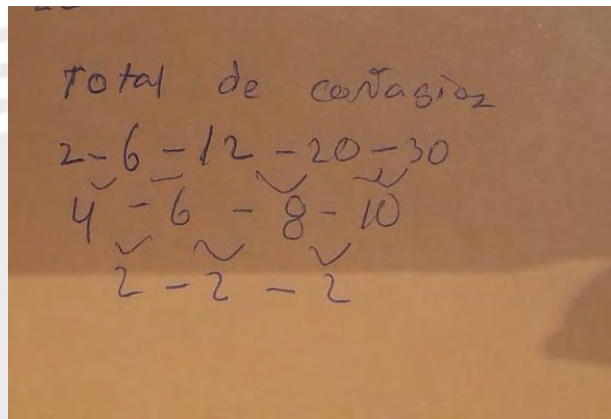 Total de contagios
2-6-12-20-30
4-6-8-10
2-2-2